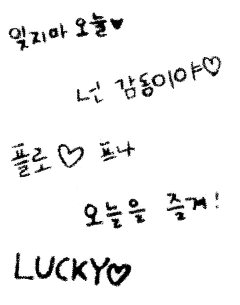 잊지마 오늘♥
넌 감동이야♡
플로 ♡ 프나
오늘을 즐겨!
LUCKY♡